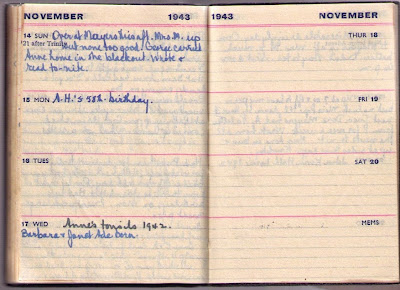 NOVEMBER 1943
14 SUN Over at Mayers this aft. Mrs M. up
21 after Trinity but none too good. George carried
Anne home in the blackout. Write &
read to-nite.
15 MON A.H.'s 58th birthday.
16 TUES
17 WED Anne's tonsils 1942.
Barbara & Janet Ade born.
1943 NOVEMBER
THUR 18
FRI 19
SAT 20
MEMS